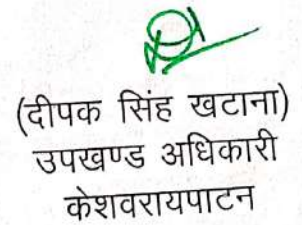 (दीपक सिंह खटाना)
उपखण्ड अधिकारी
केशवरायपाटन